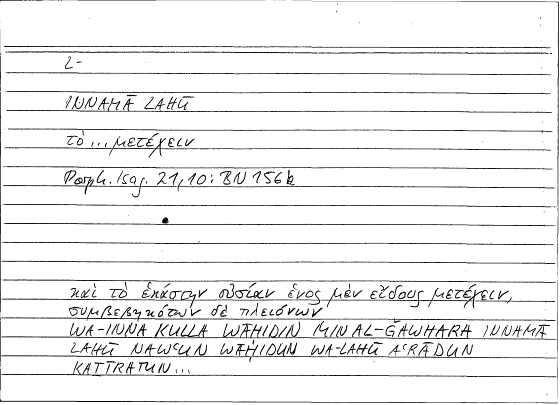 L-
INNAMĀ LAHŪ
τὸ ... μετέχειν
Porph. Isag. 21,10: BN 156b
καὶ τὸ ἑκάστην οὐσίαν ἑνὸς μὲν εἴδους μετέχειν,
συμβεβηκότων δὲ πλειόνων
WA-INNA KULLA WĀḤIDIN MIN AL-ǦAWHARA INNAMĀ
LAHŪ NAWʿUN WĀḤIDUN WA-LAHŪ AʿRĀḌUN
KAṮĪRATUN...